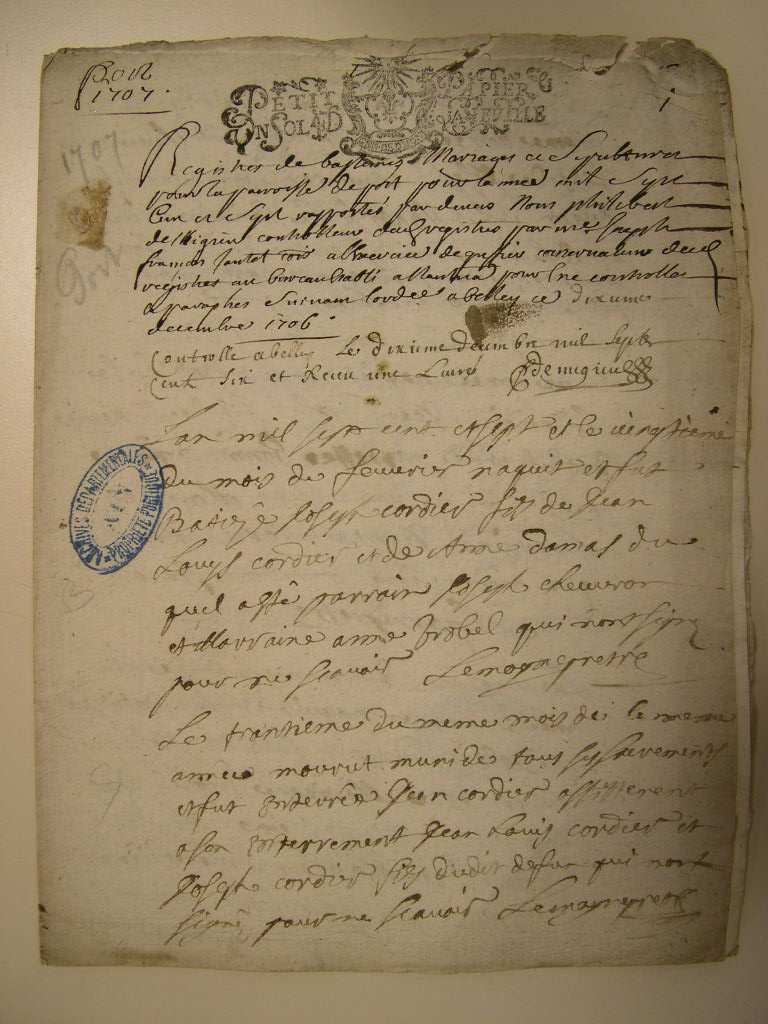 Port
1707.
PETIT PAPIER
UN SOL LA FEVILLE
1
1707
Port
Registres de baptemes Mariages et Sepultures
pour la paroisse de port pour lannee mil Sept
Cent et Sept rapportés par devers Nous philibert
controlleur des registres par mre Joseph
francois conservateur des
registres au bureau establi a pour Etre controllés
& paraphes Suivant a belley ce dixieme
decembre 1706.
Controllé a belley Le dixieme decembre mil Sept
Cent Six et Receu une Livre
Lan mil sept cent et sept et le vingtieme
du mois de feuvrier naquit et fut
Batisé Joseph cordier fils de Jean
Louys cordier et de Anne damas du
quel a esté parrain Joseph chevron
et Marraine anne qui nont signé
pour ne scavoir Lemoyne pretre
Le trantieme du meme mois de la meme
annee mourut muni de tous ses sacrements
et fut Enterré Jean cordier assisterent
a son Enterrement Jean Louis cordier et
Joseph cordier fils dudit defun qui nont
signé pour ne scavoir Lemoyne pretre
ARCHIVES DÉPARTEMENTALES
AIN
PROPRIÉTÉ PUBLIQUE